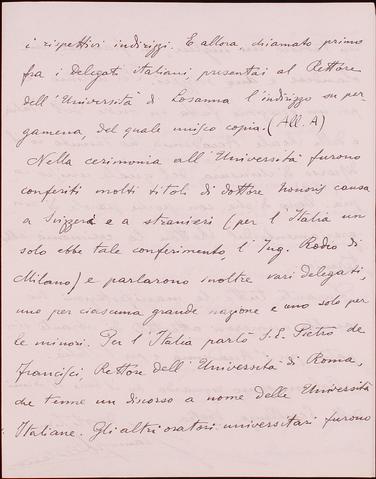 i rispettivi indirizzi. E allora chiamato primo
fra i Delegati italiani, presentai al Rettore
dell'Università di Losanna l'indirizzo su per-
gamena, del quale unisco copia. (All. A)
Nella cerimonia all'Università furono
conferiti molti titoli di dottore honoris causa
a Svizzeri e a stranieri (per l'Italia un
solo ebbe tale conferimento, l'Ing. Rodio di
Milano) e parlarono inoltre vari delegati,
uno per ciascuna grande nazione e uno solo per
le minori. Per l'Italia parlò S.E. Pietro de
Francisci, Rettore dell'Università di Roma,
che tenne un discorso a nome delle Università
Italiane. Gli altri oratori universitari furono